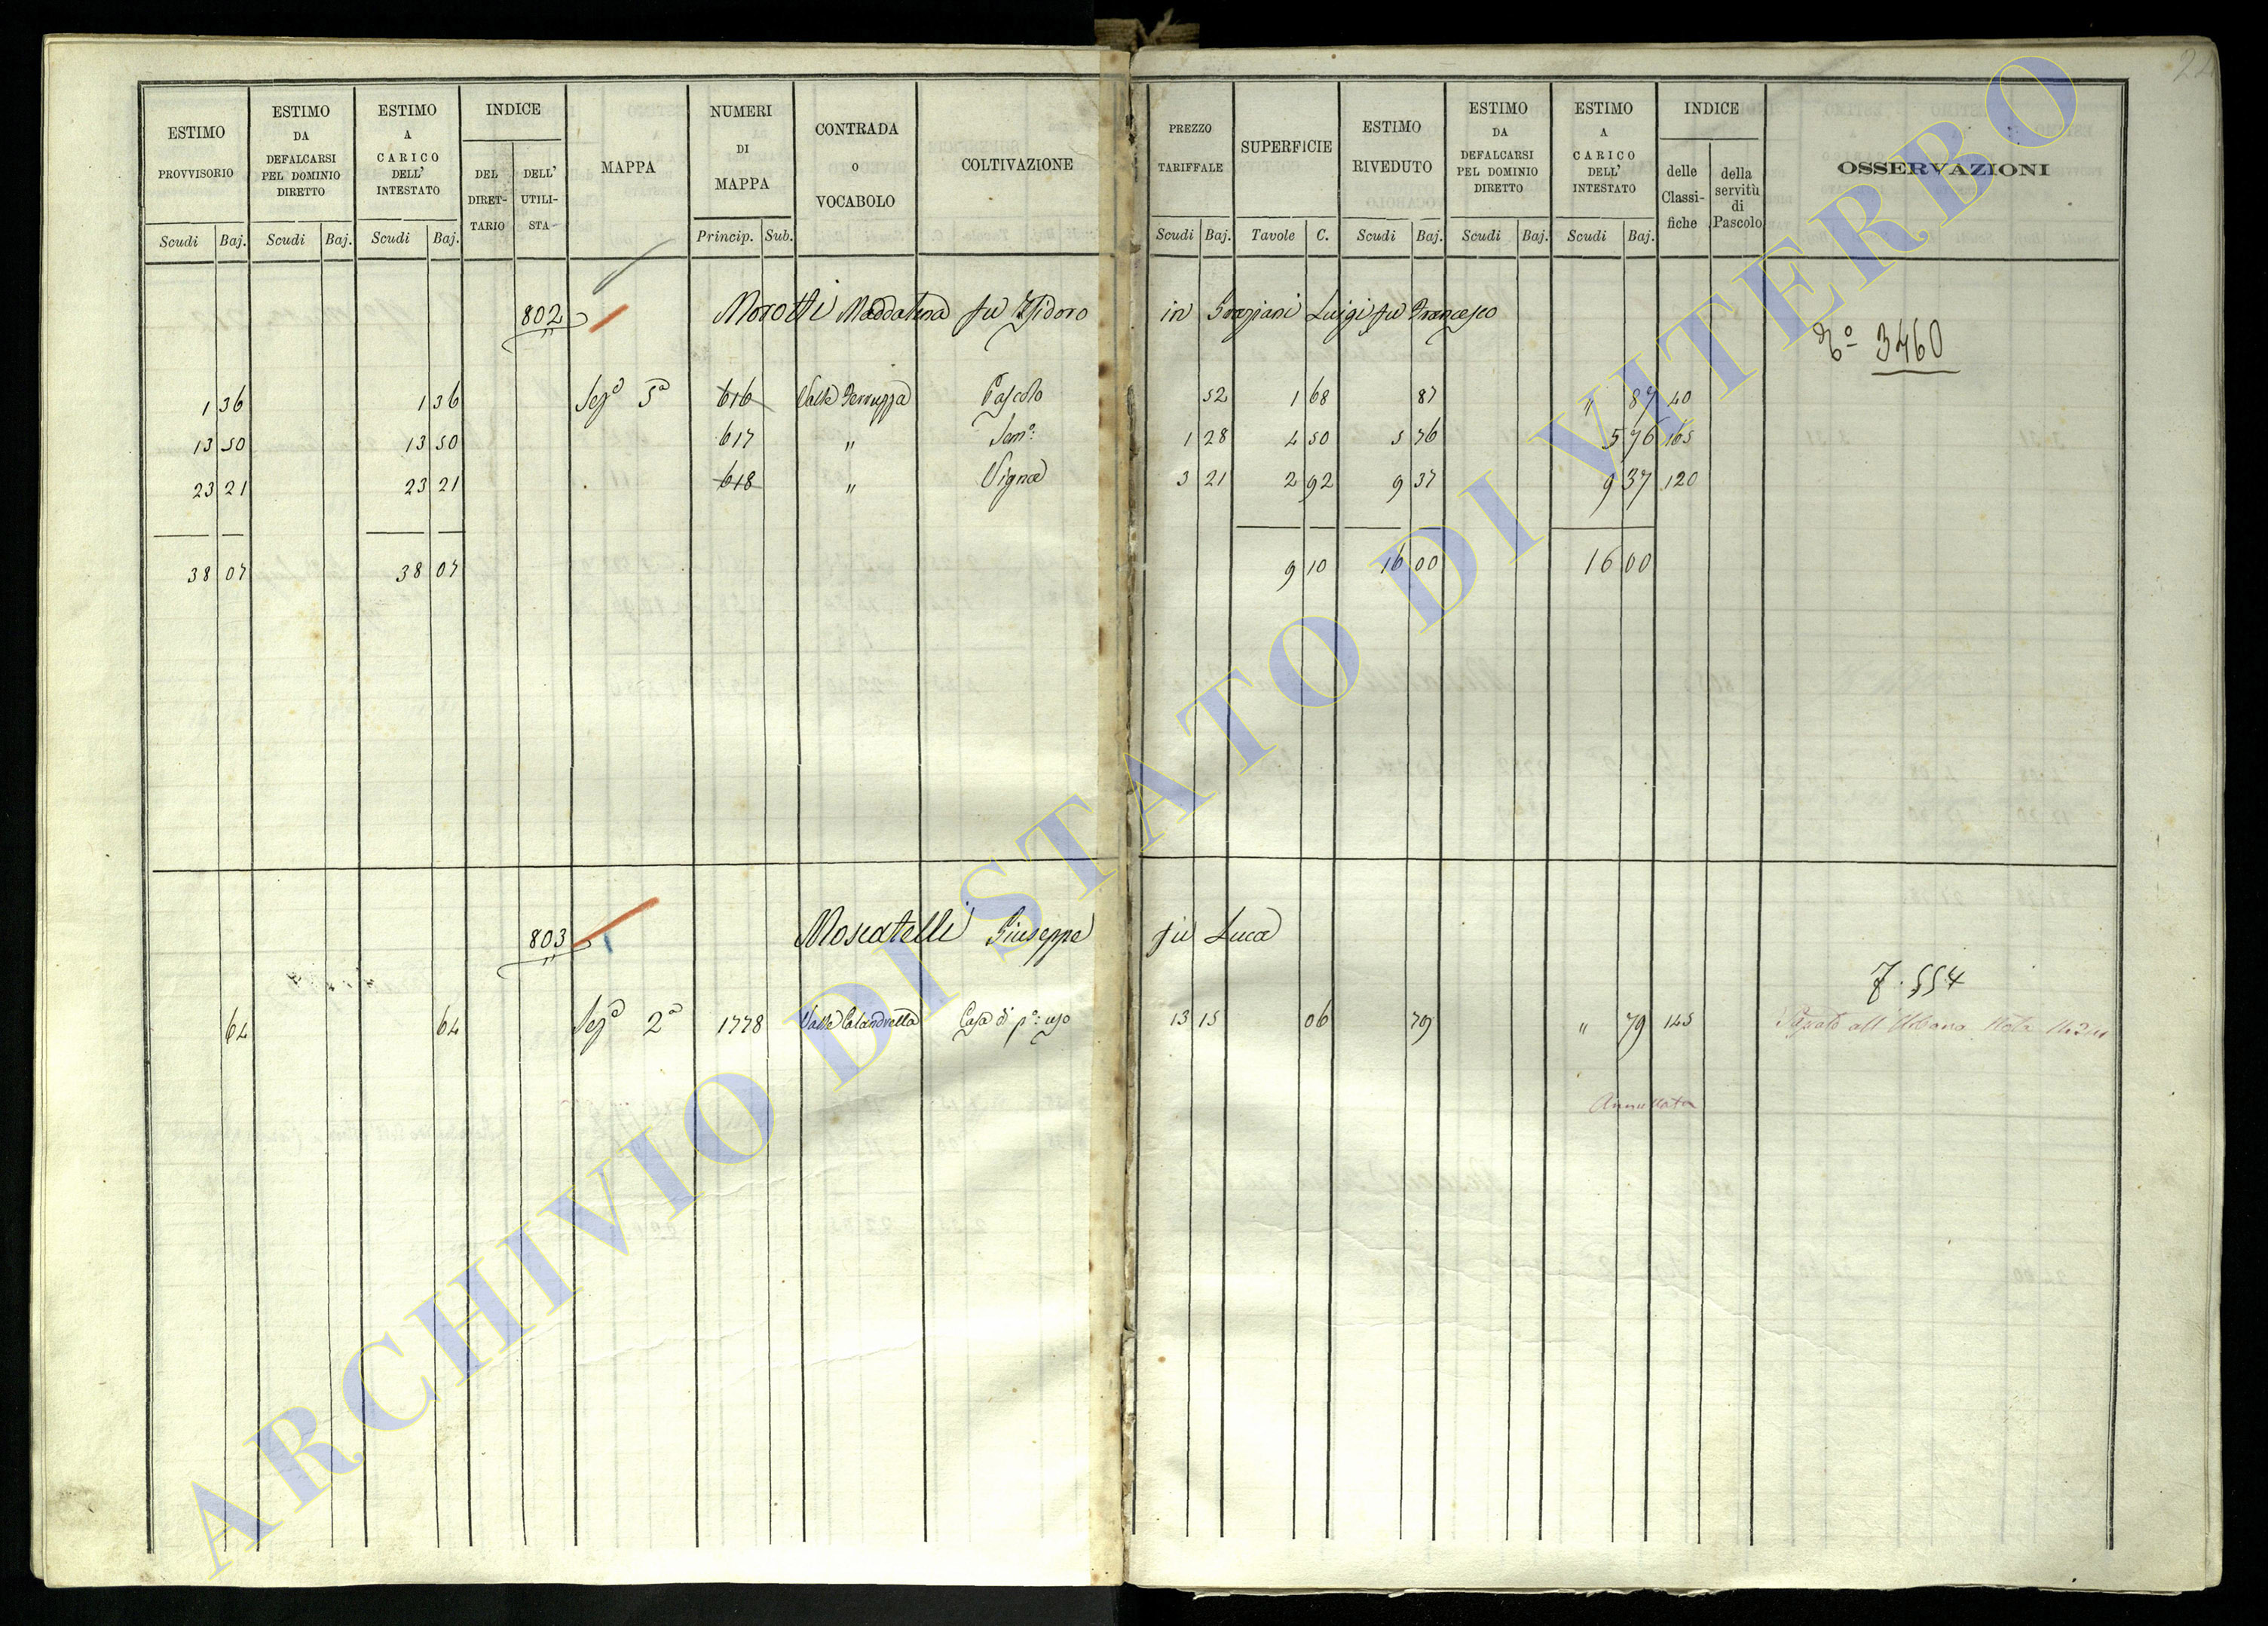 24
ESTIMO PROVVISORIO | ESTIMO DA DEFALCARSI PEL DOMINIO DIRETTO | ESTIMO A CARICO DELL' INTESTATO | INDICE | MAPPA | NUMERI DI MAPPA | CONTRADA O VOCABOLO | COLTIVAZIONE | PREZZO TARIFFALE | SUPERFICIE | ESTIMO RIVEDUTO | ESTIMO DA DEFALCARSI PEL DOMINIO DIRETTO | ESTIMO A CARICO DELL' INTESTATO | INDICE | OSSERVAZIONI
DEL DIRETTARIO | DELL' UTILISTA | delle Classifiche | della servitù di Pascolo
Scudi | Baj. | Scudi | Baj. | Scudi | Baj. | Princip. | Sub. | Scudi | Baj. | Tavole | C. | Scudi | Baj. | Scudi | Baj. | Scudi | Baj.
802 Morotti Maddalena fu Isidoro in Graziani Luigi fu Francesco
No 3460
1 36 | 1 36 | Seza 5a | 616 | Valle | Pascolo | 52 | 1 68 | 87 | " 87 | 40
13 50 | 13 50 | 617 | " | Semo | 1 28 | 4 50 | 5 76 | 5 76 | 165
23 21 | 23 21 | 618 | " | Vigna | 3 21 | 2 92 | 9 37 | 9 37 | 120
38 07 | 38 07 | 9 10 | 16 00 | 16 00
803 Moscatelli Giuseppe fu Luca
7.554
64 | 64 | Seza 2a | 1778 | Valle Calandrella | Casa di po: uso | 13 15 | 06 | 79 | " 79 | 145 | all'Urbano Nota
Annullata
ARCHIVIO DI STATO DI VITERBO